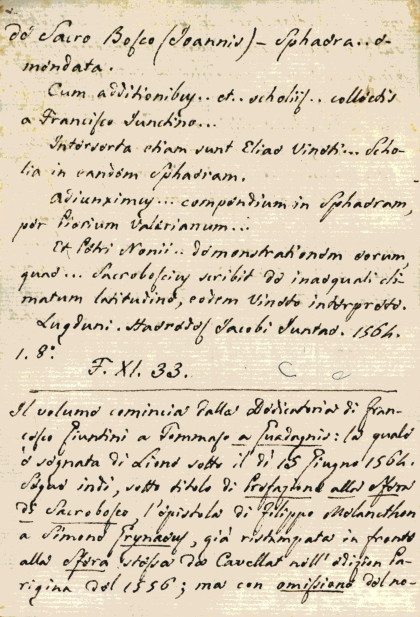 de Sacro Bosco (Joannis) – Sphaera.. e-
mendata.
Cum additionibus.. et.. scholiis.. collectis
a Francisco Junctino...
Interserta etiam sunt Eliae Vineti... Scho-
lia in eandem Sphaeram.
Adiunximus... compendium in Sphaeram,
per Pierium Valerianum...
Et Petri Nonii.. demonstrationem eorum,
quae... Sacroboscius scribit de inaequali cli-
matum latitudine, eodem Vineto interprete.
Lugduni. Haeredes Jacobi Juntae. 1564.
1. 8°.
F. XI. 33.
Il volume comincia dalla Dedicatoria di Fran-
cesco Giuntini a Tommaso a Guadagnis: la quale
è segnata di Lione sotto il dì 15 Giugno 1564.
Segue indi, sotto titolo di Prefazione alla Sfera
di Sacrobosco l'epistola di Filippo Melancthon
a Simone Grynaeus, già ristampata in fronte
alla Sfera stessa da Cavellat nell' edizion Pa-
rigina del 1556; ma con omissione del no-